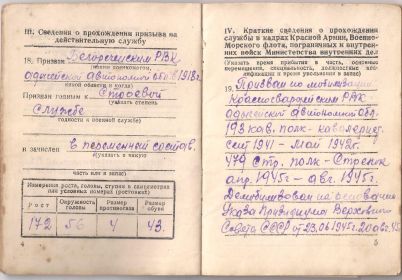 III. Сведения о прохождении призыва на
действительную службу
18. Призван Белореченским РВК
(каким военкоматом,
Адыгейской автономной обл. в 1918 г.
какой области и когда)
Признан годным к строевой
(указать степень
службе
годности к военной службе)
и зачислен в переменный состав.
(указать в какую
часть или в запас)
Измерения роста, головы, ступни в сантиметрах
или условных номерах (ростовках)
Рост
Окружность головы
Размер противогаза
Размер обуви
172
56
4
43.
4
IV. Краткие сведения о прохождении
службы в кадрах Красной Армии, Военно-
Морского флота, пограничных и внутрен-
них войск Министерства внутренних дел
(Указать время прибытия в часть, основные
перемещения, специальность, должностные ква-
лификации и время увольнения в запас)
19. Призван по мобилизации
Красногвардейским РВК
Адыгейской автономной обл.
193 кав. полк - кавалерист
сент 1941 - май 1942г.
479 стр. полк - стрелок
апр. 1945г - авг. 1945г.
Демобилизован на основании
Указа Президиума Верховного
Совета СССР от 23.06.1945г. 20 авг. 45
5